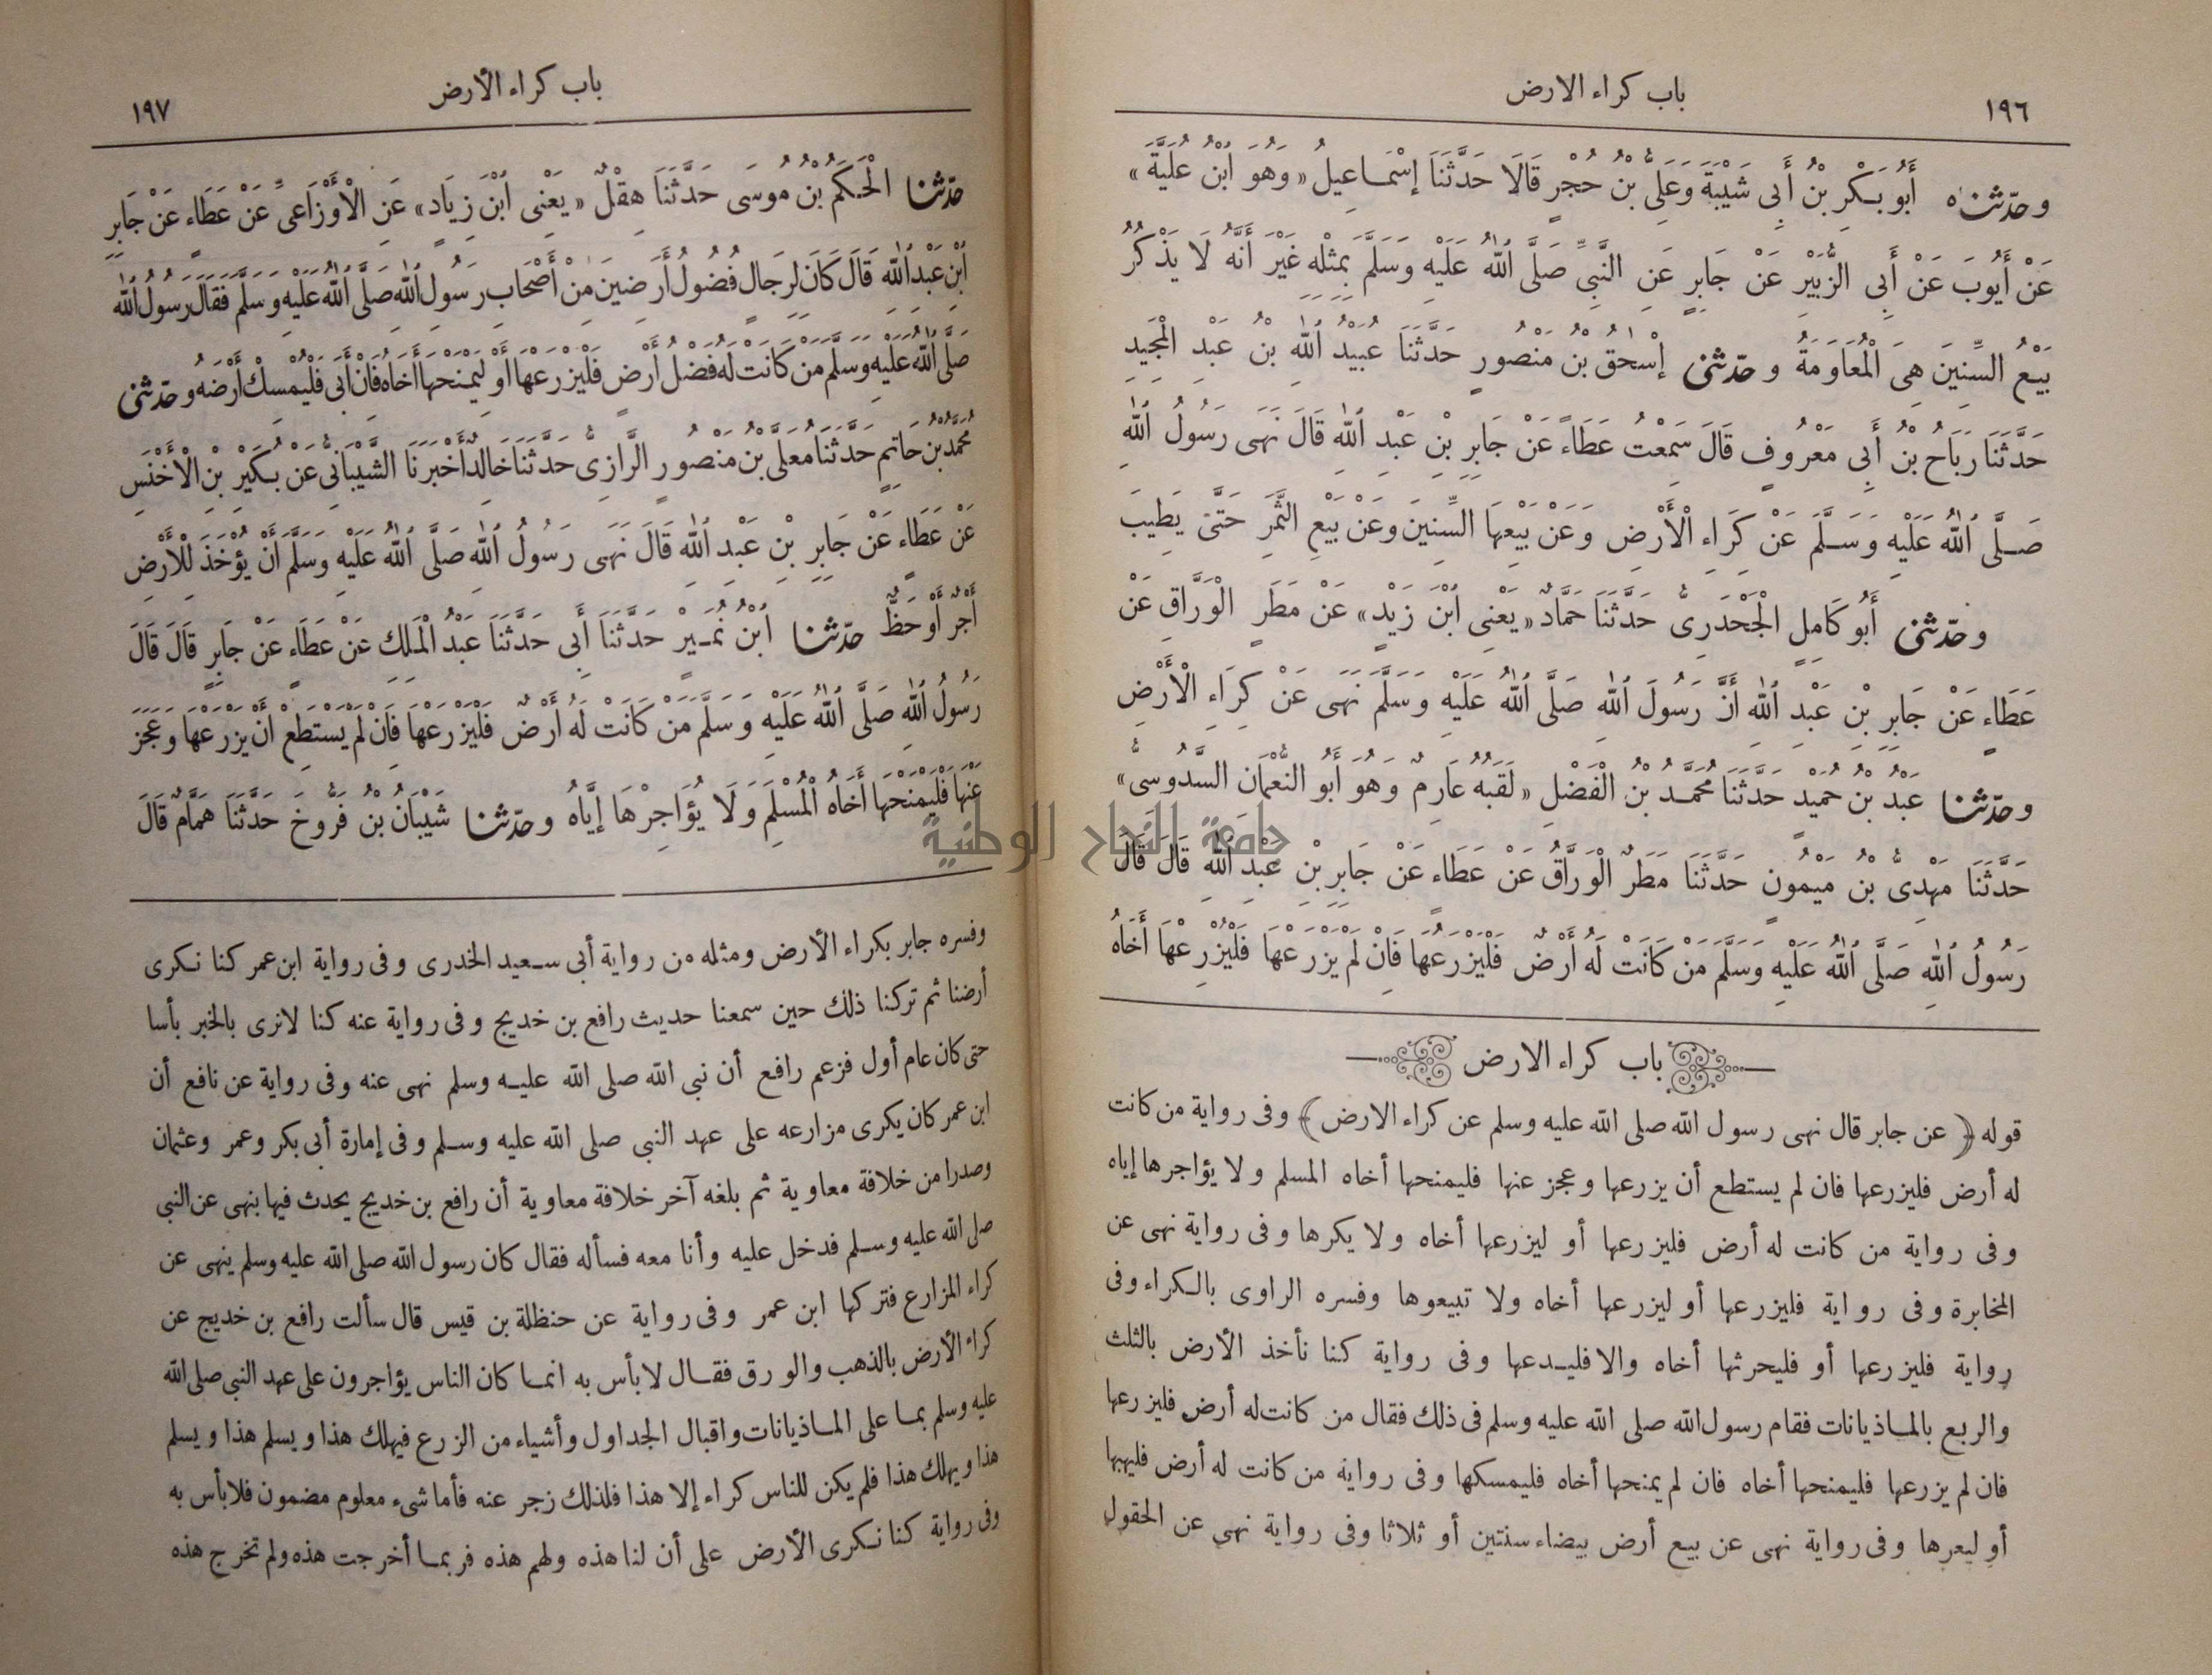 ١٩٦
باب كراء الارض
وحدثناه أَبُو بَكْرِ بْنُ أَبِى شَيْبَةَ وَعَلِىُّ بْنُ حُجْرٍ قَالَا حَدَّثَنَا إِسْمَاعِيلُ «وَهُوَ ابْنُ عُلَيَّةَ»
عَنْ أَيُّوبَ عَنْ أَبِى الزُّبَيْرِ عَنْ جَابِرٍ عَنِ النَّبِىِّ صَلَّى اللّٰهُ عَلَيْهِ وَسَلَّمَ بِمِثْلِهِ غَيْرَ أَنَّهُ لَا يَذْكُرُ
بَيْعُ السِّنِينَ هِىَ الْمُعَاوَمَةُ وحدثنى إِسْحٰقُ بْنُ مَنْصُورٍ حَدَّثَنَا عُبَيْدُ اللّٰهِ بْنُ عَبْدِ الْمَجِيدِ
حَدَّثَنَا رَبَاحُ بْنُ أَبِى مَعْرُوفٍ قَالَ سَمِعْتُ عَطَاءً عَنْ جَابِرِ بْنِ عَبْدِ اللّٰهِ قَالَ نَهَى رَسُولُ اللّٰهِ
صَلَّى اللّٰهُ عَلَيْهِ وَسَلَّمَ عَنْ كِرَاءِ الْأَرْضِ وَعَنْ بَيْعِهَا السِّنِينَ وَعَنْ بَيْعِ الثَّمَرِ حَتَّى يَطِيبَ
وحدثنى أَبُو كَامِلٍ الْجَحْدَرِىُّ حَدَّثَنَا حَمَّادٌ «يَعْنِى ابْنَ زَيْدٍ» عَنْ مَطَرٍ الْوَرَّاقِ عَنْ
عَطَاءٍ عَنْ جَابِرِ بْنِ عَبْدِ اللّٰهِ أَنَّ رَسُولَ اللّٰهِ صَلَّى اللّٰهُ عَلَيْهِ وَسَلَّمَ نَهَى عَنْ كِرَاءِ الْأَرْضِ
وحدثنا عَبْدُ بْنُ حُمَيْدٍ حَدَّثَنَا مُحَمَّدُ بْنُ الْفَضْلِ «لَقَبُهُ عَارِمٌ وَهُوَ أَبُو النُّعْمَانِ السَّدُوسِىُّ»
حَدَّثَنَا مَهْدِىُّ بْنُ مَيْمُونٍ حَدَّثَنَا مَطَرٌ الْوَرَّاقُ عَنْ عَطَاءٍ عَنْ جَابِرِ بْنِ عَبْدِ اللّٰهِ قَالَ قَالَ
رَسُولُ اللّٰهِ صَلَّى اللّٰهُ عَلَيْهِ وَسَلَّمَ مَنْ كَانَتْ لَهُ أَرْضٌ فَلْيَزْرَعْهَا فَإِنْ لَمْ يَزْرَعْهَا فَلْيُزْرِعْهَا أَخَاهُ
باب كراء الارض
قوله ﴿عن جابر قال نهى رسول الله صلى الله عليه وسلم عن كراء الارض﴾ وفى رواية من كانت
له أرض فليزرعها فان لم يستطع أن يزرعها وعجز عنها فليمنحها أخاه المسلم ولا يؤاجرها إياه
وفى رواية من كانت له أرض فليزرعها أو ليزرعها أخاه ولا يكرها وفى رواية نهى عن
المخابرة وفى رواية فليزرعها أو ليزرعها أخاه ولا تبيعوها وفسره الراوى بالكراء وفى
رواية فليزرعها أو فليحرثها أخاه والا فليدعها وفى رواية كنا نأخذ الأرض بالثلث
والربع بالماذيانات فقام رسول الله صلى الله عليه وسلم فى ذلك فقال من كانت له أرض فليزرعها
فان لم يزرعها فليمنحها أخاه فان لم يمنحها أخاه فليمسكها وفى رواية من كانت له أرض فليهبها
أو ليعرها وفى رواية نهى عن بيع أرض بيضاء سنتين أو ثلاثا وفى رواية نهى عن الحقول
باب كراء الأرض
١٩٧
حدثنا الْحَكَمُ بْنُ مُوسَى حَدَّثَنَا هِقْلٌ «يَعْنِى ابْنَ زِيَادٍ» عَنِ الْأَوْزَاعِىِّ عَنْ عَطَاءٍ عَنْ جَابِرِ
ابْنِ عَبْدِ اللّٰهِ قَالَ كَانَ لِرِجَالٍ فُضُولُ أَرَضِينَ مِنْ أَصْحَابِ رَسُولِ اللّٰهِ صَلَّى اللّٰهُ عَلَيْهِ وَسَلَّمَ فَقَالَ رَسُولُ اللّٰهِ
صَلَّى اللّٰهُ عَلَيْهِ وَسَلَّمَ مَنْ كَانَتْ لَهُ فَضْلُ أَرْضٍ فَلْيَزْرَعْهَا أَوْ لِيَمْنَحْهَا أَخَاهُ فَإِنْ أَبَى فَلْيُمْسِكْ أَرْضَهُ وحدثنى
مُحَمَّدُ بْنُ حَاتِمٍ حَدَّثَنَا مُعَلَّى بْنُ مَنْصُورٍ الرَّازِىُّ حَدَّثَنَا خَالِدٌ أَخْبَرَنَا الشَّيْبَانِىُّ عَنْ بُكَيْرِ بْنِ الْأَخْنَسِ
عَنْ عَطَاءٍ عَنْ جَابِرِ بْنِ عَبْدِ اللّٰهِ قَالَ نَهَى رَسُولُ اللّٰهِ صَلَّى اللّٰهُ عَلَيْهِ وَسَلَّمَ أَنْ يُؤْخَذَ لِلْأَرْضِ
أَجْرٌ أَوْ حَظٌّ حدثنا ابْنُ نُمَيْرٍ حَدَّثَنَا أَبِى حَدَّثَنَا عَبْدُ الْمَلِكِ عَنْ عَطَاءٍ عَنْ جَابِرٍ قَالَ قَالَ
رَسُولُ اللّٰهِ صَلَّى اللّٰهُ عَلَيْهِ وَسَلَّمَ مَنْ كَانَتْ لَهُ أَرْضٌ فَلْيَزْرَعْهَا فَإِنْ لَمْ يَسْتَطِعْ أَنْ يَزْرَعَهَا وَعَجَزَ
عَنْهَا فَلْيَمْنَحْهَا أَخَاهُ الْمُسْلِمَ وَلَا يُؤَاجِرْهَا إِيَّاهُ وحدثنا شَيْبَانُ بْنُ فَرُّوخَ حَدَّثَنَا هَمَّامٌ قَالَ
جامعة النجاح الوطنية
وفسره جابر بكراء الأرض ومثله من رواية أبى سعيد الخدرى وفى رواية ابن عمر كنا نكرى
أرضنا ثم تركنا ذلك حين سمعنا حديث رافع بن خديج وفى رواية عنه كنا لانرى بالخبر بأسا
حتى كان عام أول فزعم رافع أن نبى الله صلى الله عليه وسلم نهى عنه وفى رواية عن نافع أن
ابن عمر كان يكرى مزارعه على عهد النبى صلى الله عليه وسلم وفى إمارة أبى بكر وعمر وعثمان
وصدرا من خلافة معاوية ثم بلغه آخر خلافة معاوية أن رافع بن خديج يحدث فيها بنهى عن النبى
صلى الله عليه وسلم فدخل عليه وأنا معه فسأله فقال كان رسول الله صلى الله عليه وسلم ينهى عن
كراء المزارع فتركها ابن عمر وفى رواية عن حنظلة بن قيس قال سألت رافع بن خديج عن
كراء الأرض بالذهب والورق فقال لا بأس به انما كان الناس يؤاجرون على عهد النبى صلى الله
عليه وسلم بما على الماذيانات واقبال الجداول وأشياء من الزرع فيهلك هذا ويسلم هذا ويسلم
هذا ويهلك هذا فلم يكن للناس كراء إلا هذا فلذلك زجر عنه فأما شىء معلوم مضمون فلا بأس به
وفى رواية كنا نكرى الأرض على أن لنا هذه ولهم هذه فربما أخرجت هذه ولم تخرج هذه